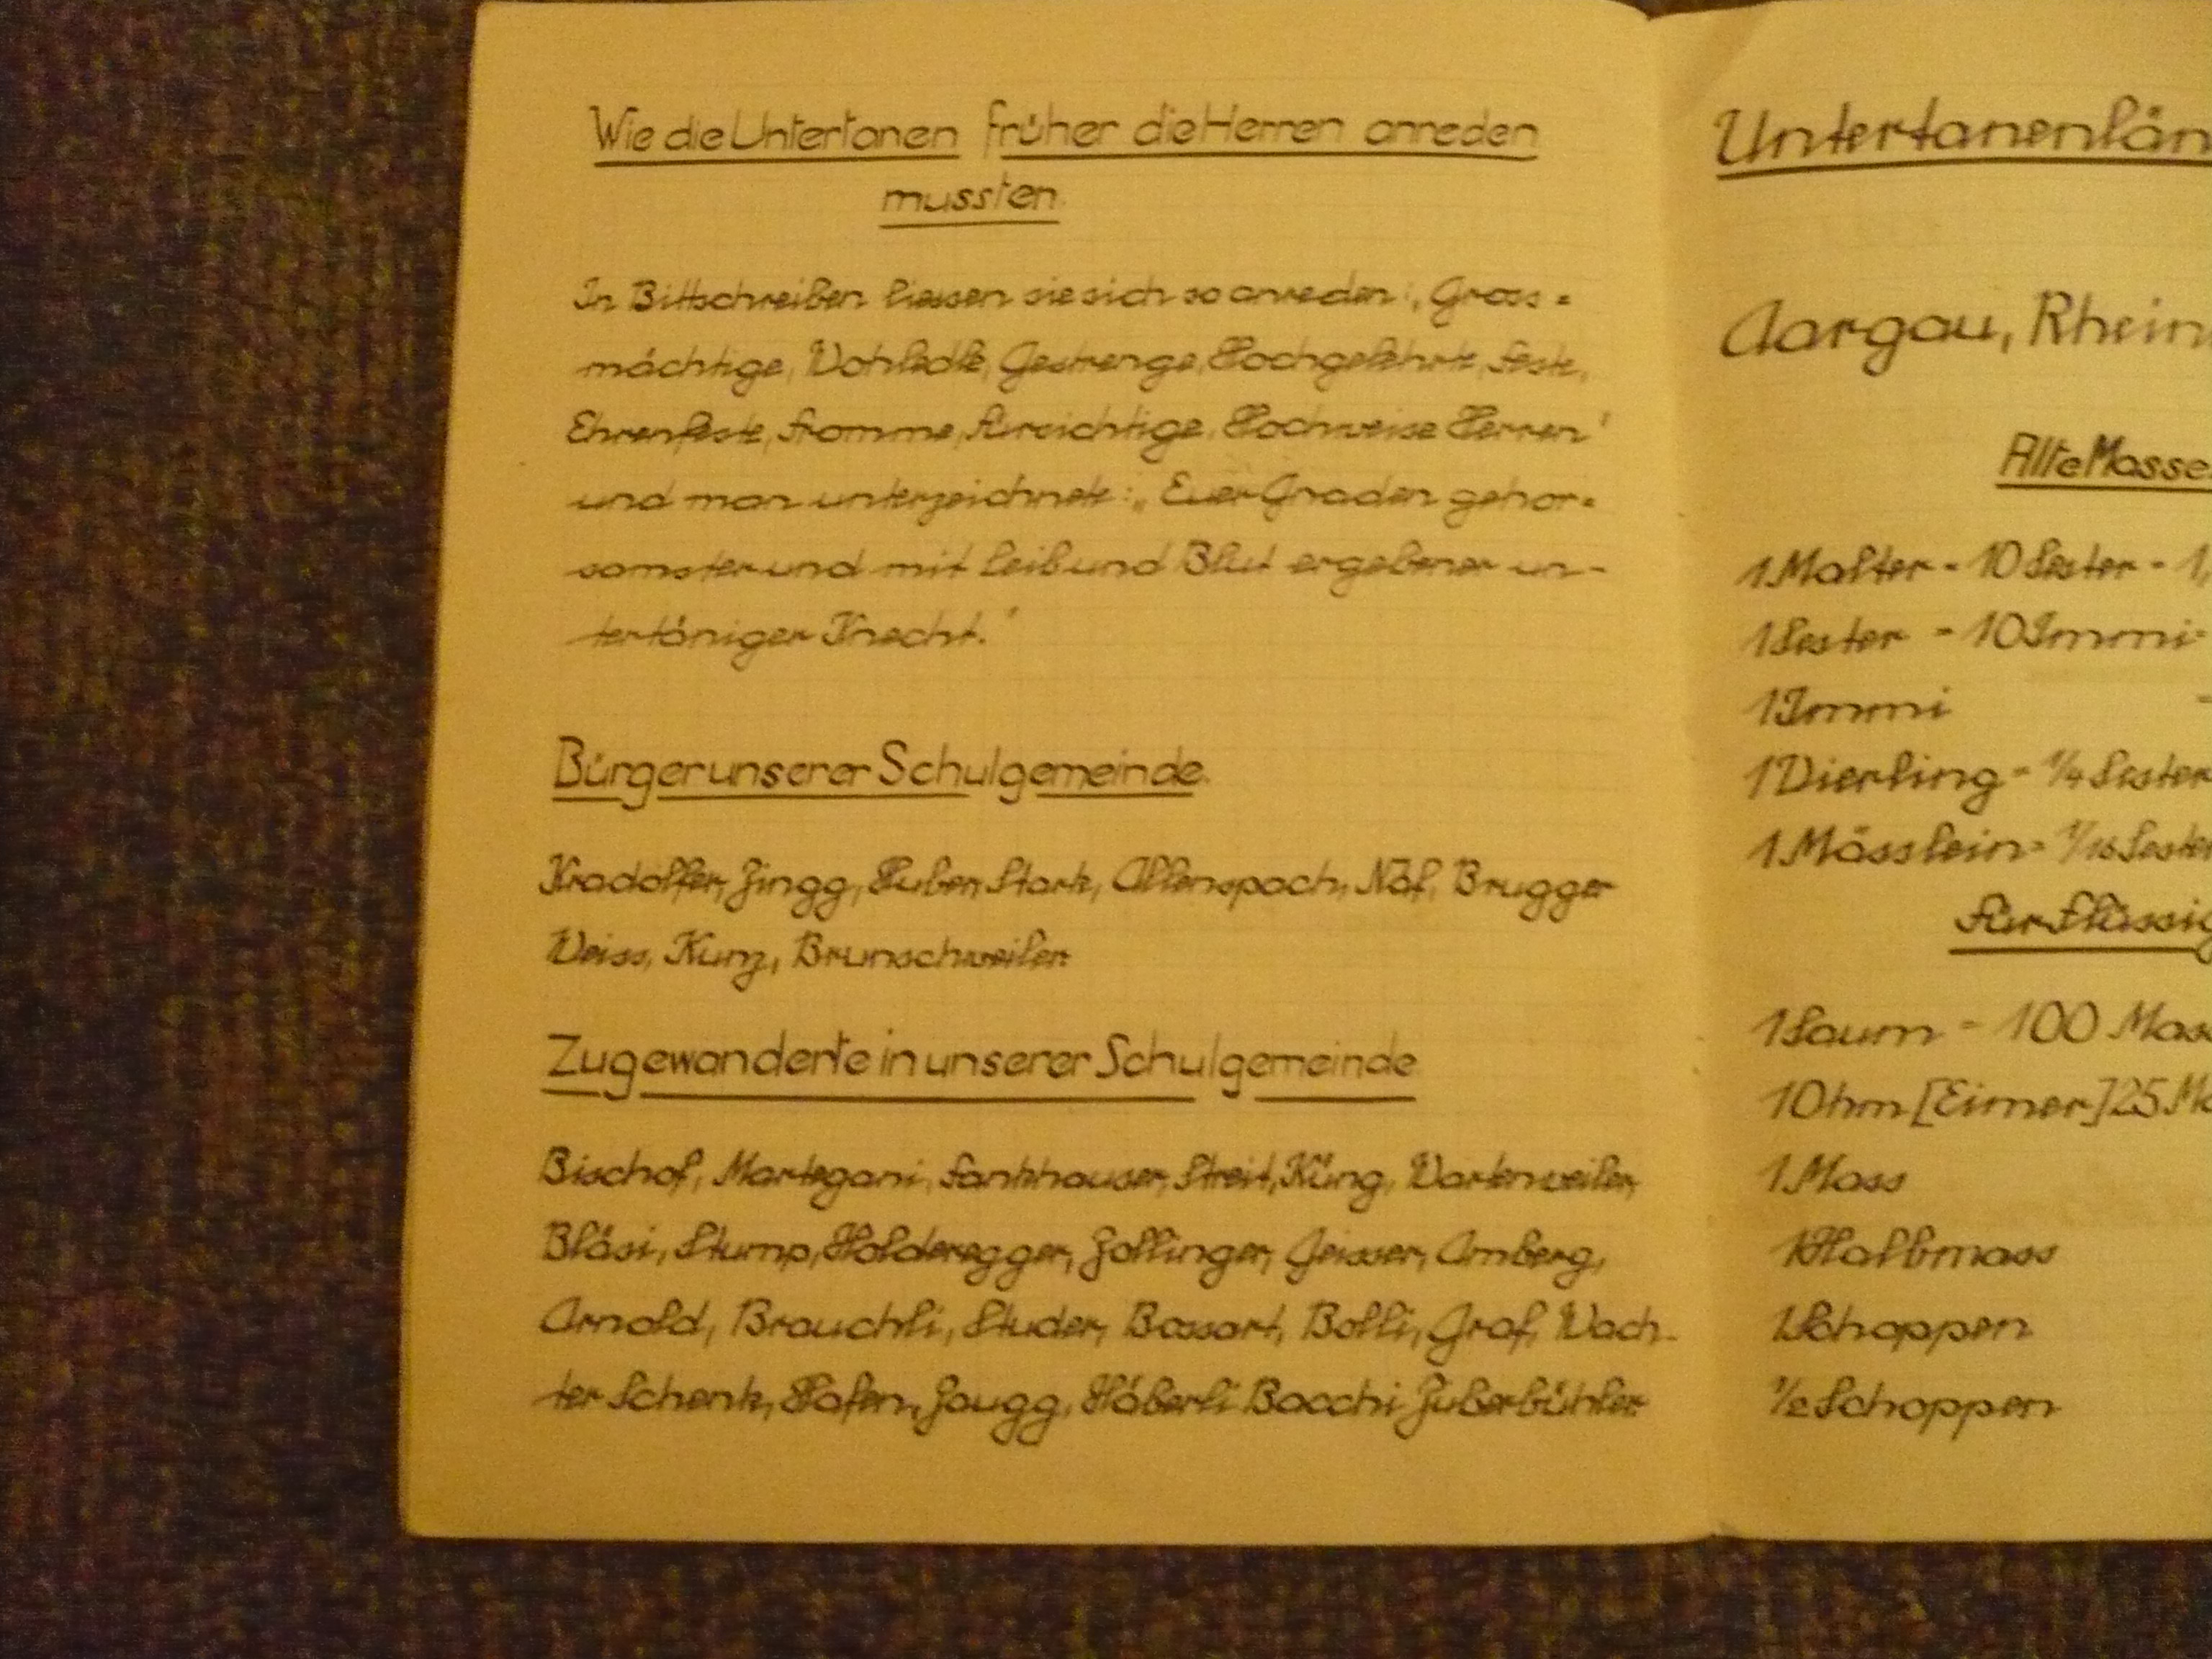 Wie die Untertanen früher die Herren anreden
mussten.
In Bittschreiben liessen sie sich so anreden: „Gross=
mächtige, Wohledle, Gestrenge, Hochgelehrte, Feste,
Ehrenfeste, Fromme, Fürsichtige, Hochweise Herren"
und man unterzeichnete: „Euer Gnaden gehor=
samster und mit Leib und Blut ergebener un-
tertäniger Knecht."
Bürger unserer Schulgemeinde.
Kradolfer, Zingg, Huber, Stark, Allenspach, Näf, Brugger
Weiss, Kunz, Brunschweiler.
Zugewanderte in unserer Schulgemeinde
Bischof, Martegani, Fankhauser, Streit, Küng, Wartenweiler,
Bläsi, Stump, Holderegger, Zollinger, Geisser, Amberg,
Arnold, Brauchli, Studer, Bossart, Bolli, Graf, Wach-
ter Schenk, Hafen, Zaugg, Häberli Bacchi Züberbühler
Untertanenlän
Aargau, Rhein
Alte Masse
1 Malter = 10 Sester = 1,
1 Sester = 10 Immi =
1 Immi =
1 Vierling = 1/4 Sester
1 Mässlein = 1/16 Sester
für Flüssig
1 Saum = 100 Mass
1 Ohm [Eimer] 25 Ma
1 Mass
1 Halbmass
1 Schoppen
1/2 Schoppen